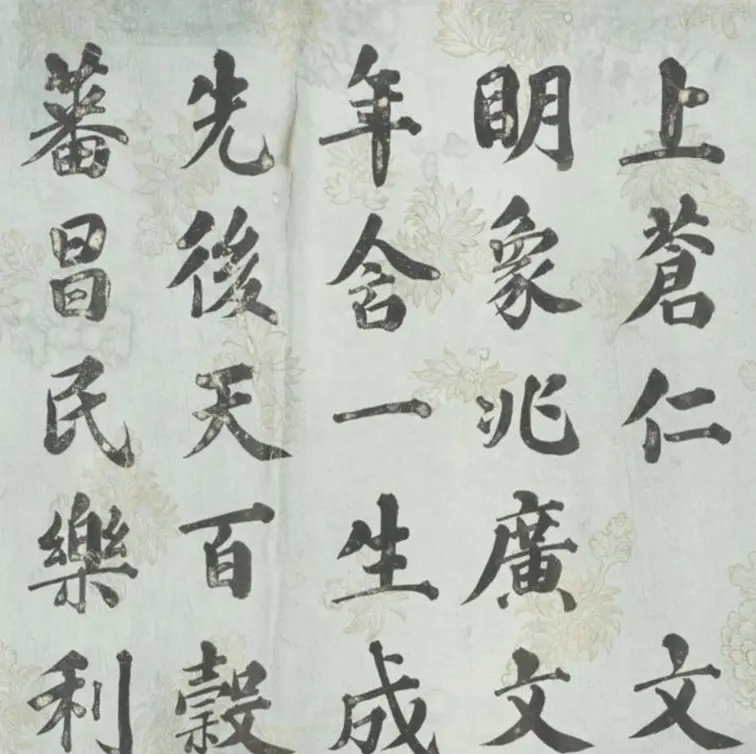 上蒼仁文
明象兆廣文
年含一生成
先後天百穀
蕃昌民樂利